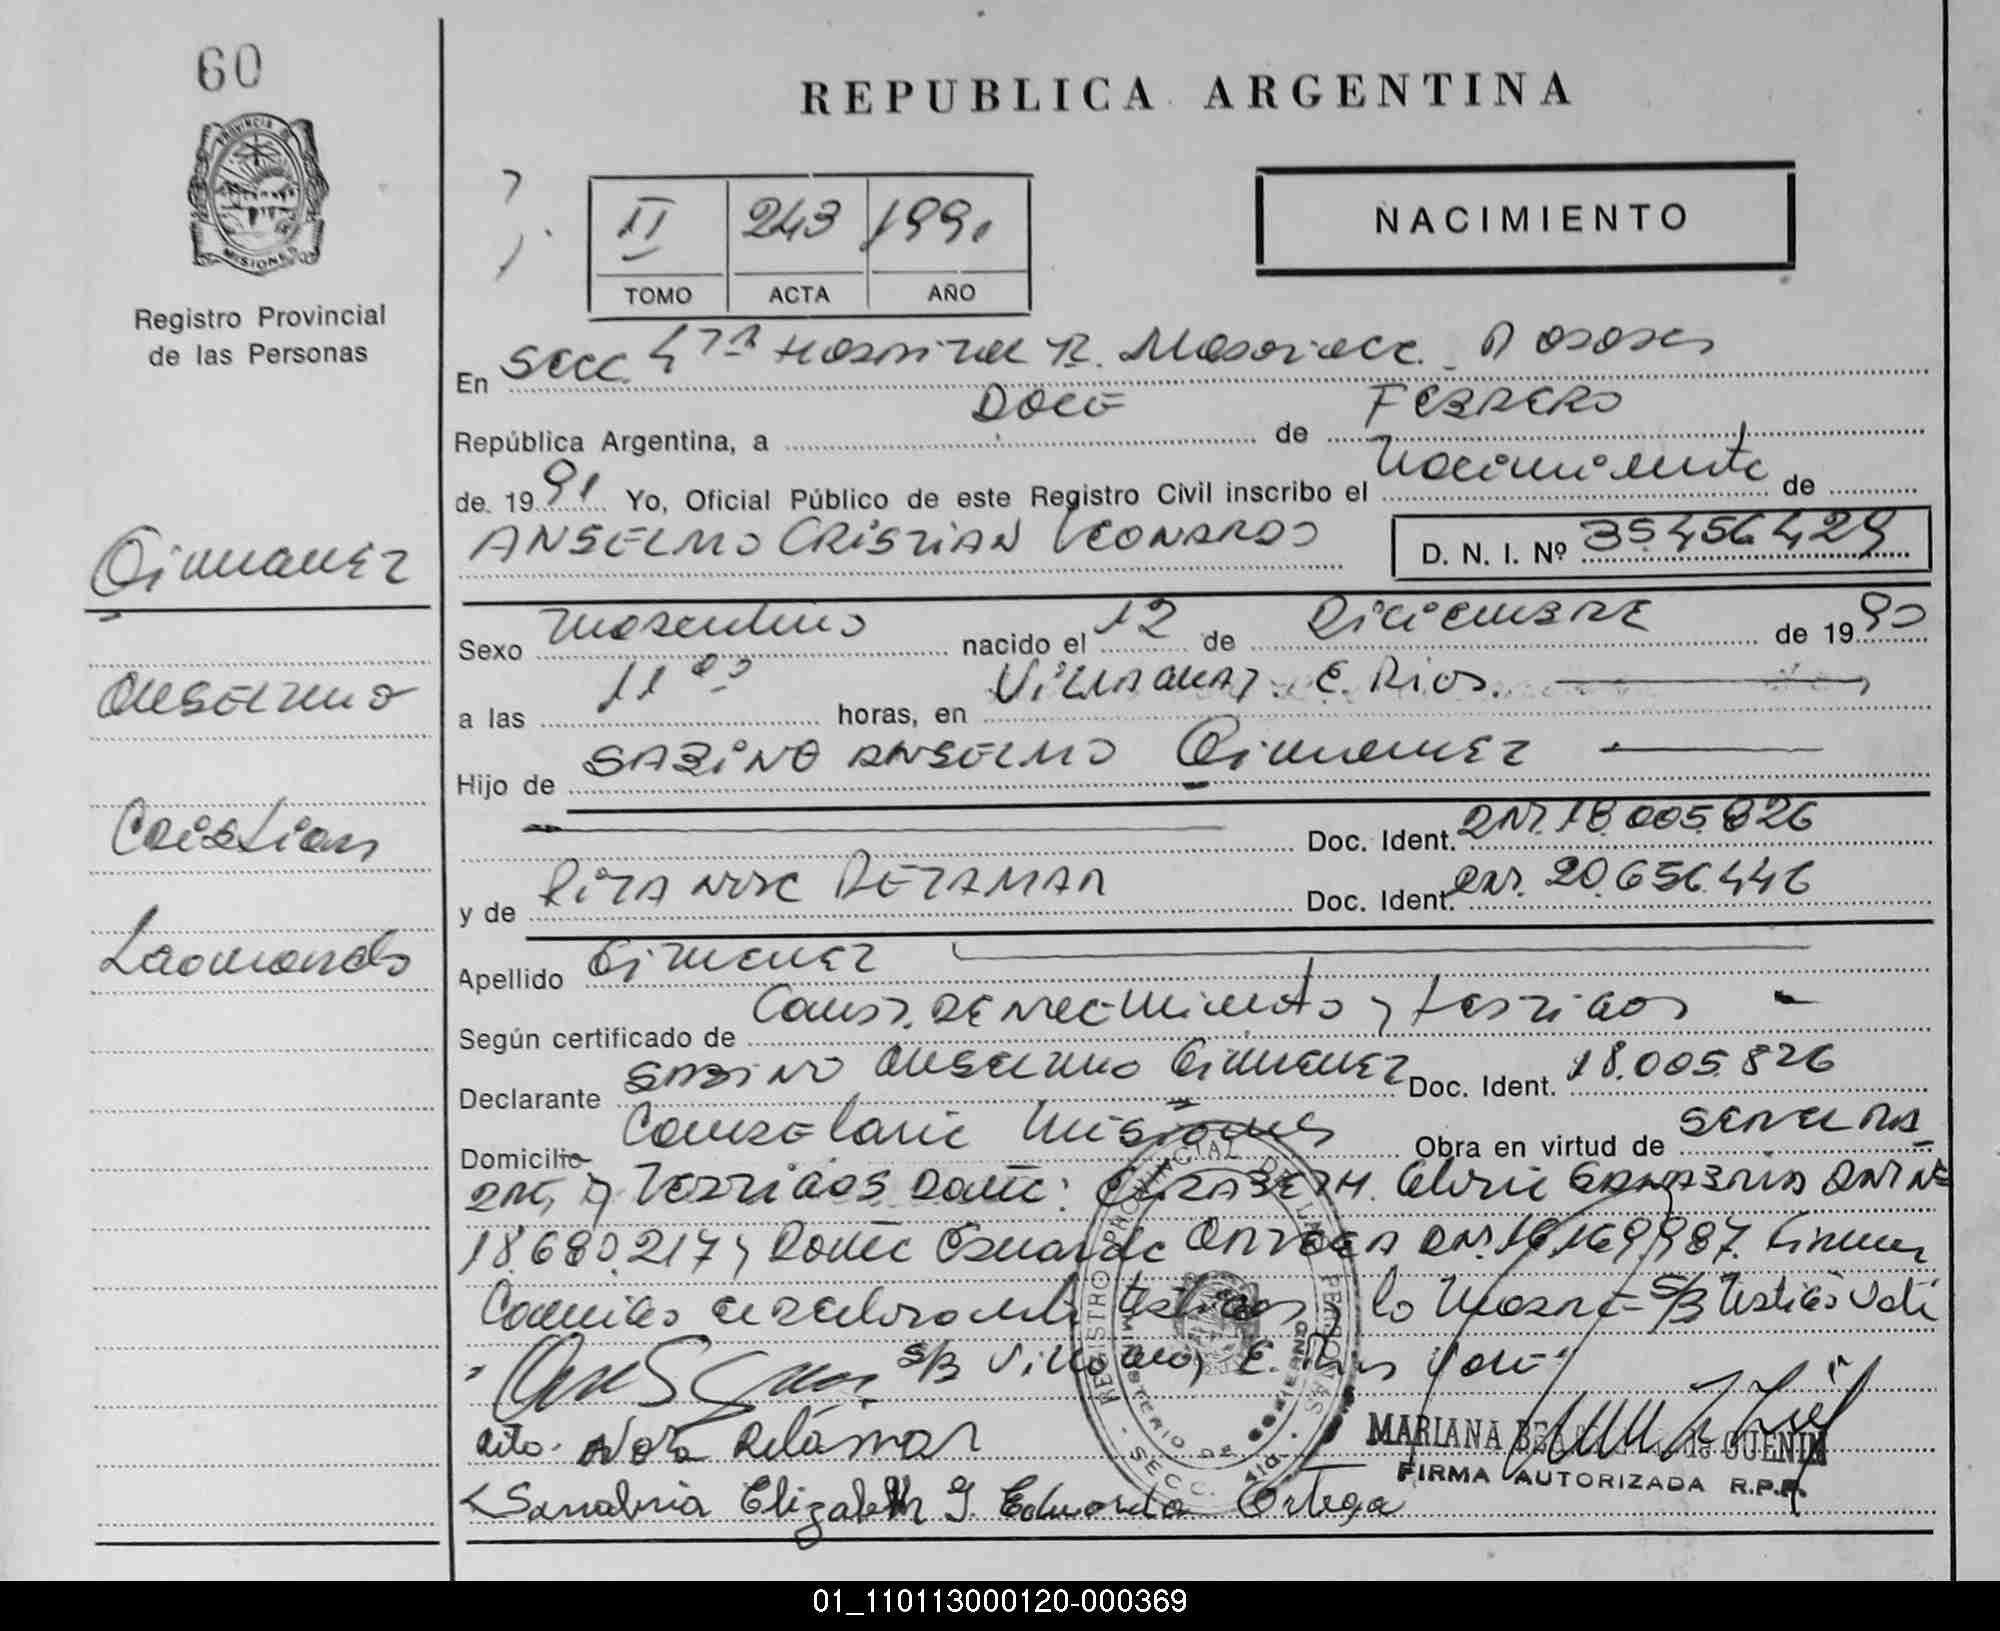 60
REPUBLICA ARGENTINA
PROVINCIA DE
MISIONES
Registro Provincial
de las Personas
II 243 1991
TOMO ACTA AÑO
NACIMIENTO
En Secc. 4ta Hospital R. Madariaga. Posadas
República Argentina, a DOCE de FEBRERO
de 1991 Yo, Oficial Público de este Registro Civil inscribo el Nacimiento de
ANSELMO CRISTIAN LEONARDO D. N. I. Nº 35.456.429
Gimenez
Anselmo
Cristian
Leonardo
Sexo Masculino nacido el 12 de Diciembre de 1990
a las 11 00 horas, en Villaguay. E. Rios.
Hijo de SABINO ANSELMO Gimenez
Doc. Ident. DNI. 18.005.826
y de RITA NORA RETAMAR Doc. Ident. DNI. 20.656.446
Apellido Gimenez
Según certificado de Const. de nacimiento y testigos
Declarante SABINO Anselmo Gimenez Doc. Ident. 18.005.826
Domicilio Candelaria Misiones Obra en virtud de
DNI, y Testigos Doña: ELIZABETH Gloria SANABRIA DNI Nº
18.680.217 y Eduardo ORTEGA DNI. Firman
testigos y la Madre S/B testigos Vale
S/B Villaguay E. Rios Vale
Rita Nora Retamar
Sanabria Elizabeth G. Eduardo Ortega
REGISTRO PROVINCIAL DE LAS PERSONAS
MINISTERIO DE GOBIERNO
SECC. 4ta.
MARIANA de GUENIN
FIRMA AUTORIZADA R.P.P.
01_110113000120-000369